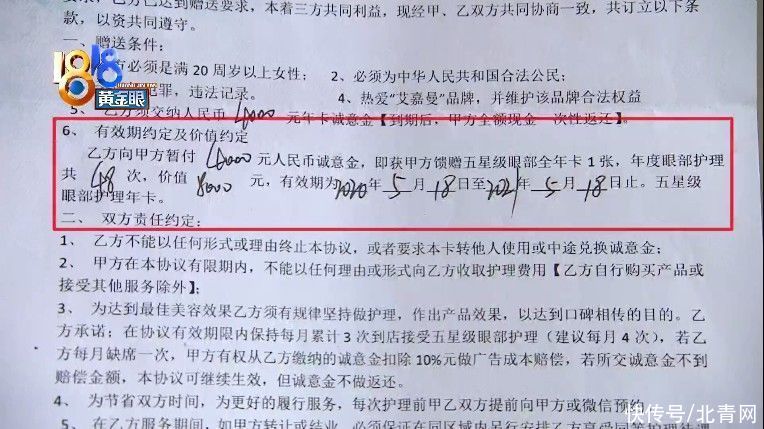 要求，乙方已达到赠送要求，本着三方共同利益，现经甲、乙双方共同协商一致，共订立以下条
款，以资共同遵守。
一、赠送条件：
方必须是满 20 周岁以上女性； 2、必须为中华人民共和国合法公民；
犯罪，违法记录。 4、热爱“艾嘉曼”品牌，并维护该品牌合法权益
5、乙方须交纳人民币 4000 元年卡诚意金【到期后，甲方全额现金一次性返还】。
6、 有效期约定及价值约定
乙方向甲方暂付 4000 元人民币诚意金，即获甲方馈赠五星级眼部全年卡 1 张，年度眼部护理
共 48 次，价值 8000 元，有效期为 2020 年 5 月 18 日至 2021 年 5 月 18 日止。五星级
眼部护理年卡。
二、 双方责任约定：
1、 乙方不能以任何形式或理由终止本协议，或者要求本卡转他人使用或中途兑换诚意金；
2、 甲方在本协议有限期内，不能以任何理由或形式向乙方收取护理费用【乙方自行购买产品或
接受其他服务除外】；
3、 为达到最佳美容效果乙方须有规律坚持做护理，作出产品效果，以达到口碑相传的目的。乙
方承诺：在协议有效期限内保持每月累计 3 次到店接受五星级眼部护理（建议每月 4 次），若乙
方每月缺席一次，甲方有权从乙方缴纳的诚意金扣除 10%元做广告成本赔偿，若所交诚意金不到
赔偿金额，本协议可继续生效，但诚意金不做返还。
4、 为节省双方时间，为更好的履行服务，每次护理前甲乙双方提前向甲方或微信预约
5、 在乙方服务期间，如甲方转让或结业，必须保证在同区域内另行安排乙方享受同等护理待遇
1818
黄金眼
快传号/北青网